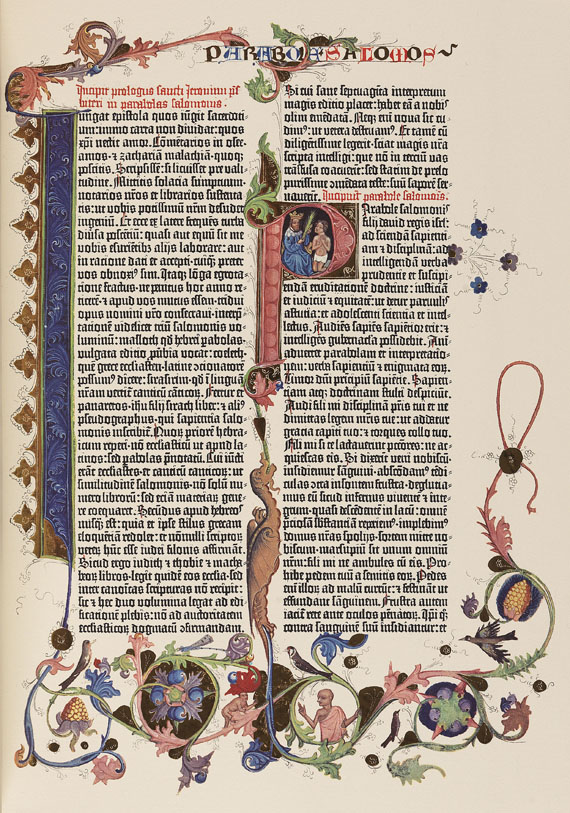 PARABOLE SALOMOIS
Incipit prologus sancti Jeronimi
in parabolas salomonis.
Iungat epistola quos iungit sacerdoti-
um: immo carta non dividat: quos
xpi nectit amor. Comentarios in osee.
amos. et zachariam malachiam. quoq;
poscitis. Scripsissem: si licuisset pre vali-
tudine. Mittitis solacia sumptuum.
notarios nostros et librarios sustenta-
tis: ut vobis potissimum nostrum desudet
ingenium. Et ecce ex latere frequens turba
diversa poscentium: quasi aut equum sit me
vobis esurientibus alijs laborare: aut
in ratione dati et accepti. cuiq; preter
vos obnoxius sim. Itaq; longa egrota-
tione fractus. ne penitus hoc anno re-
ticerem. et apud vos mutus essem. tridui
opus nomini vestro consecravi. interpre-
tationem videlicet trium salomonis vo-
luminum: masloth quod hebrei parabolas.
vulgata editio pverbia vocat: coeleth.
quem grece ecclesiasten. latine concionatorem
possumus dicere: sirasirim. quod in linguam
nostram vertitur canticum canticorum. Fertur et
panaretos. ihu filij sirach liber: et alius
pseudographus. qui sapientia salo-
monis inscribitur. Quorum priorem hebra-
icum reperi. non ecclesiasticum ut apud la-
tinos: sed parabolas pnotatum. Cui iuncti
erant ecclesiastes. et canticum canticorum: ut
similitudinem salomonis. non solum nu-
mero librorum: sed etiam materiarum gene-
re coequaret. Secundus apud hebreos
nusquam est: quia et ipse stilus grecam
eloquentiam redolet: et nonnulli scriptorum
veterum hunc esse iudei filonis affirmant.
Sicut ergo iudith et thobie et macha-
beorum libros. legit quidem eos ecclesia. sed
inter canonicas scripturas non recipit:
sic et hec duo volumina legat ad edi-
ficationem plebis: non ad auctoritatem
ecclesiasticorum dogmatum confirmandam.
Si cui sane septuaginta interpretum
magis editio placet: habet eam a nobis
olim emendatam. Neq; enim nova sic cu-
dimus: ut vetera destruamus. Et tamen cum
diligentissime legerit. sciat magis nostra
scripta intelligi: que non in tercium vas
transfusa coacuerit: sed statim de prelo
purissime commendata teste: suum saporem ser-
vaverit. Incipiunt parabole salomonis.
Parabole salomonis
filij david regis israel:
ad sciendam sapienti-
am et disciplinam: ad
intelligendam verba
prudentie et suscipi-
endam eruditionem doctrine: iusticiam
et iudicium et equitatem: ut detur parvulis
astutia: et adolescenti scientia et intel-
lectus. Audiens sapiens sapientior erit: et
intelligens gubernacula possidebit. Ani-
advertet parabolam et interpretatio-
nem: verba sapientium et enigmata eorum.
Timor domini principium sapientie. Sapien-
tiam atq; doctrinam stulti despiciunt.
Audi fili mi disciplinam patris tui et ne
dimittas legem matris tue: ut addatur
gratia capiti tuo: et torques collo tuo.
Fili mi si te lactaverint peccatores: ne ac-
quiescas eis. Si dixerint veni nobiscum.
insidiemur sanguini. abscondamus tendi-
culas contra insontem frustra. deglutia-
mus eum sicut infernus viventem et inte-
grum. quasi descendentem in lacum: omnem
preciosam substantiam reperiemus. implebimus
domus nostras spolijs. sortem mitte no-
biscum. marsupium sit unum omnium
nostrum: fili mi ne ambules cum eis. Pro-
hibe pedem tuum a semitis eorum. Pedes
enim illorum ad malum currunt: et festinant ut
effundant sanguinem. Frustra autem
iacitur rete ante oculos pennatorum. Ipsi quoque
contra sanguinem suum insidiantur: et